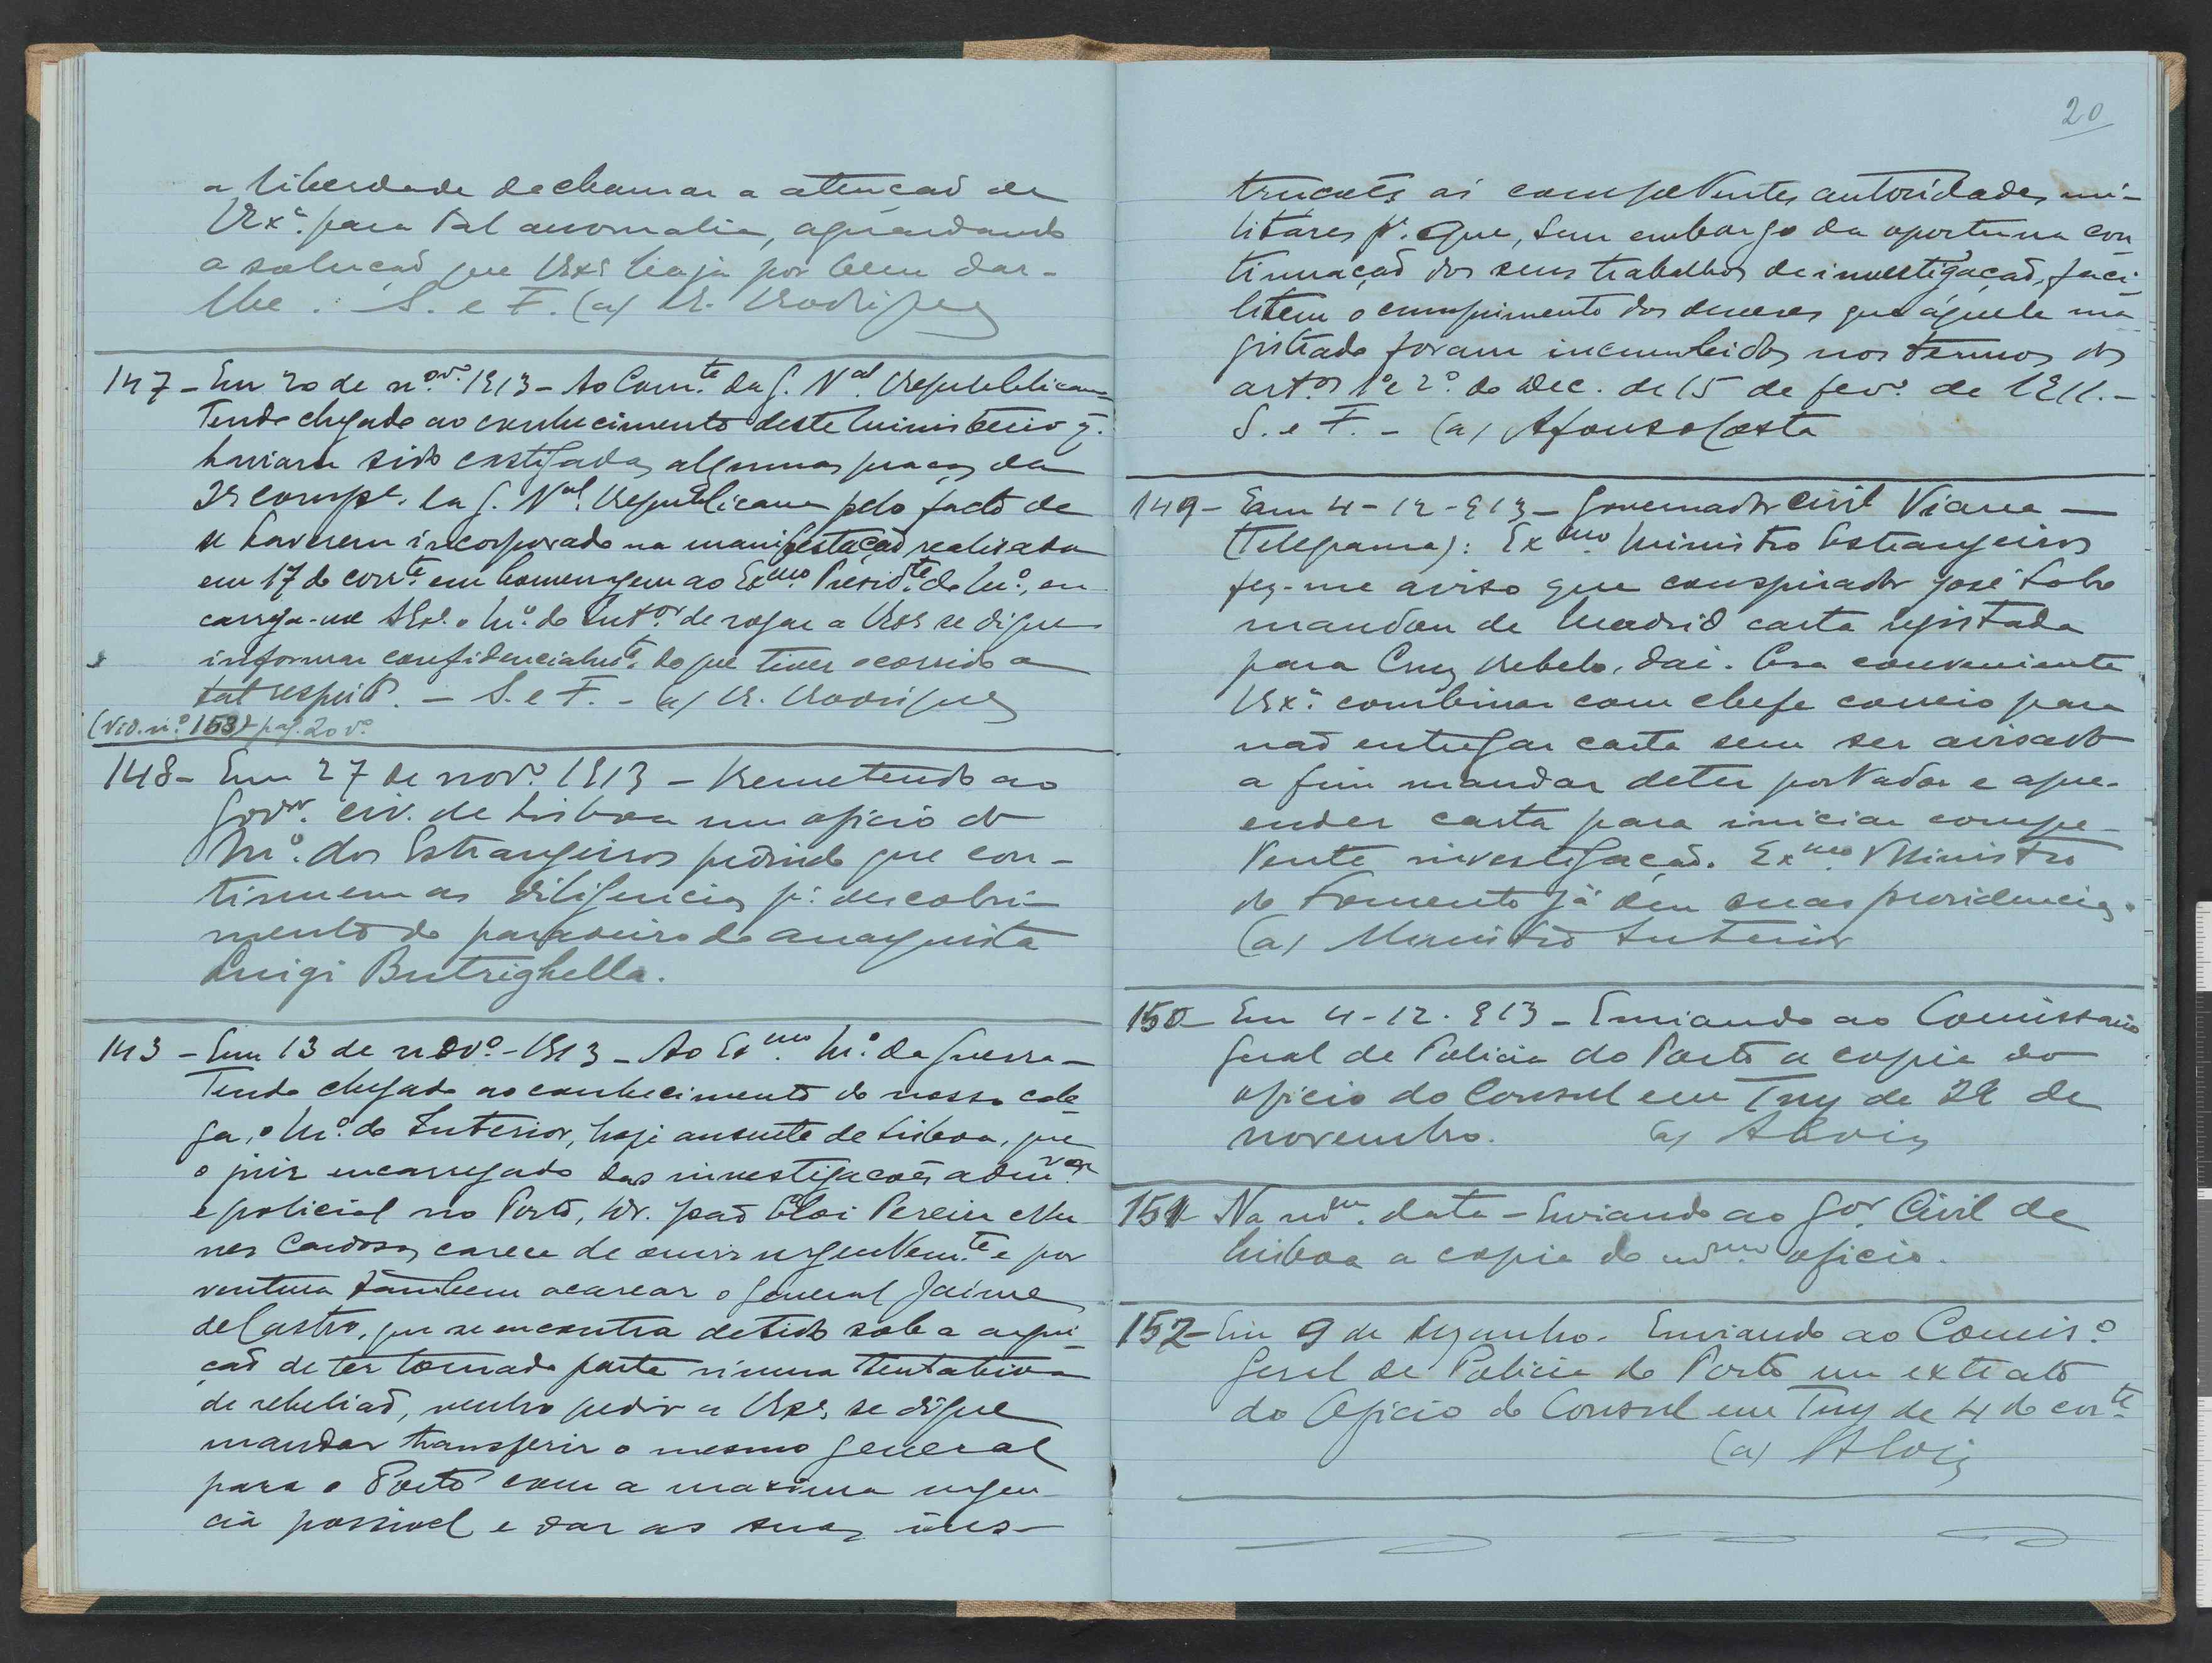 a liberdade de chamar a atenção de
V. Ex.ª para tal anomalia, aguardando
a solução que V. Ex.ª haja por bem dar-
lhe. S. e F. (a) R. Rodrigues
147 - Em 20 de n.ov.º 1913 - Ao Com.te da G. N.al Republicana
Tendo chegado ao conhecimento deste Ministerio q.
haviam sido castigadas algumas praças da
comp.ª da G. N.al Republicana pelo facto de
se haverem incorporado na manifestação realisada
em 17 do corr.te em homenagem ao Ex.mo Presid.te do M.º, en-
carrega-me S. Ex.ª o M.º do Int.or de rogar a V. Ex.ª se digne
informar confidencialm.te do que tiver ocorrido a
tal respeito. - S. e F. - (a) R. Rodrigues
(Vid. n.º 153) pag. 20 v.º
148 - Em 27 de nov.º 1913 - Remetendo ao
Gov.or civ. de Lisboa um oficio do
M.º dos Estrangeiros pedindo que con-
tinuem as diligencias p.ª descobri-
mento do paradeiro do anarquista
Luigi Butrighella.
143 - Em 13 de nov.º - 1913 - Ao Ex.mo M.º da Guerra -
Tendo chegado ao conhecimento do nosso cole-
ga, o M.º do Interior, hoje ausente de Lisboa, que
o juiz encarregado das investigações adm.vas
e policial no Porto, Dr. João Eloi Pereira Nu-
nes Cardoso, carece de ouvir urgentem.te e por
ventura tambem acarear o general Jaime
de Castro, que se encontra detido sob a argui-
ção de ter tomado parte n'uma tentativa
de rebelião, venho pedir a V. Ex.ª se digne
mandar transferir o mesmo general
para o Porto com a maxima urgen-
cia possivel e dar as suas ins-
20
truções ás competentes autoridades mi-
litares p.ª que, sem embargo da oportuna con-
tinuação dos seus trabalhos de investigação, faci-
litem o cumprimento dos deveres que áquele ma-
gistrado foram incumbidos nos termos dos
art.os 1.º e 2.º do Dec. de 15 de fev.º de 1911. -
S. e F. - (a) Afonso Costa
149 - Em 4-12-913 - Governador civil Viana -
(Telegrama): Ex.mo Ministro Estrangeiros
fez-me aviso que conspirador José
mandou de Madrid carta registada
para Cruz Rebelo, dai. Era conveniente
V. Ex.ª combinar com chefe correio para
não entregar carta sem ser avisado
a fim mandar deter portador e apre-
ender carta para iniciar compe-
tente investigação. Ex.mo Ministro
do Fomento já deu suas providencias.
(a) Ministro Interior
150 - Em 4-12-913 - Enviando ao Comissario
Geral de Policia do Porto a copia do
oficio do Consul em Tuy de 28 de
novembro. (a) Aloiz
151 Na m.ma data - Enviando ao Gov.or Civil de
Lisboa a copia do m.mo oficio.
152 - Em 9 de Dezembro. Enviando ao Comis.º
Geral de Policia do Porto um extrato
do Oficio do Consul em Tuy de 4 do cor.te
(a) Aloiz